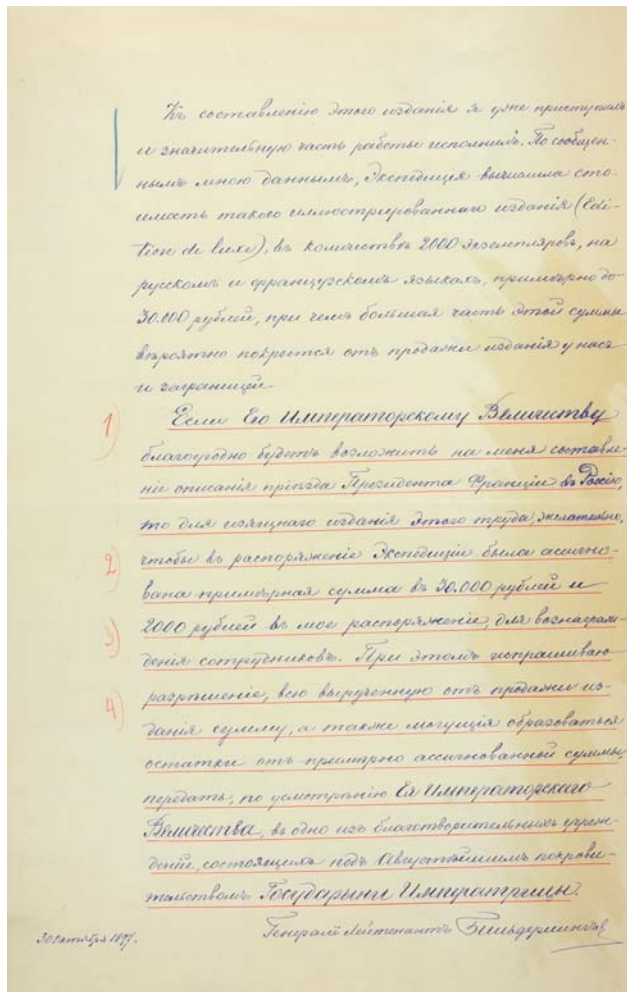 Къ составленію этого изданія я уже приступилъ
и значительную часть работы исполнилъ. По сообщен-
нымъ мною даннымъ, Экспедиція вычислила сто-
имость такого иллюстрированнаго изданія (Edi-
tion de luxe), въ количествѣ 2000 экземпляровъ, на
русскомъ и французскомъ языкахъ, примѣрно до
30.000 рублей, при чемъ большая часть этой суммы
вѣроятно покроется отъ продажи изданія у насъ
и заграницей.
1) Если Его Императорскому Величеству
благоугодно будетъ возложить на меня составле-
ніе описанія пріѣзда Президента Франціи въ Россію,
то для изящнаго изданія этого труда, желательно,
2) чтобы въ распоряженіе Экспедиціи была ассигно-
вана примѣрная сумма въ 30.000 рублей и
3) 2000 рублей въ мое распоряженіе, для вознаграж-
денія сотрудниковъ. При этомъ испрашиваю
4) разрѣшеніе, всю вырученную отъ продажи из-
данія сумму, а также могущія образоваться
остатки отъ примѣрно ассигнованной суммы,
передать, по усмотрѣнію Ея Императорскаго
Величества, въ одно изъ благотворительныхъ учреж-
деній, состоящихъ подъ Августѣйшимъ покрови-
тельствомъ Государыни Императрицы.
Генералъ Лейтенантъ Бильдерлингъ
1897.